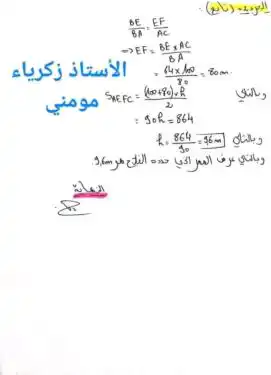 التمرين (تابع):
BE/BA = EF/AC
=> EF = BE x AC / BA
الأستاذ زكرياء مومني
= 64 x 100 / 80 = 80 m.
وبالتالي S_AEFC = (100+80) x h / 2
= 90h = 864
وبالتالي h = 864/90 = 96m
وبالتالي عرض الممر الذي حدده الفلاح هو 9,6m.
النهاية